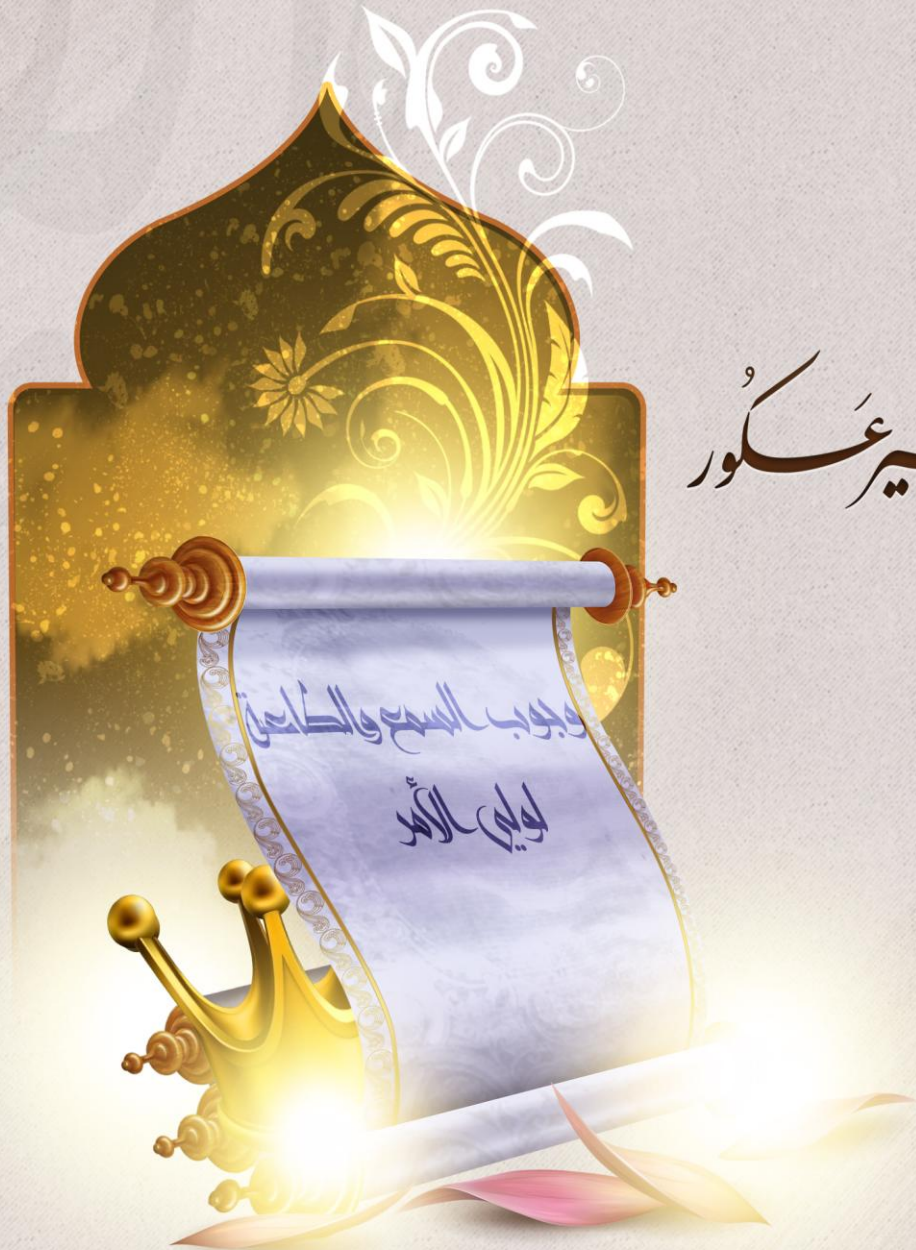 عَكُور
وجوب السمع والطاعة
لولي الأمر